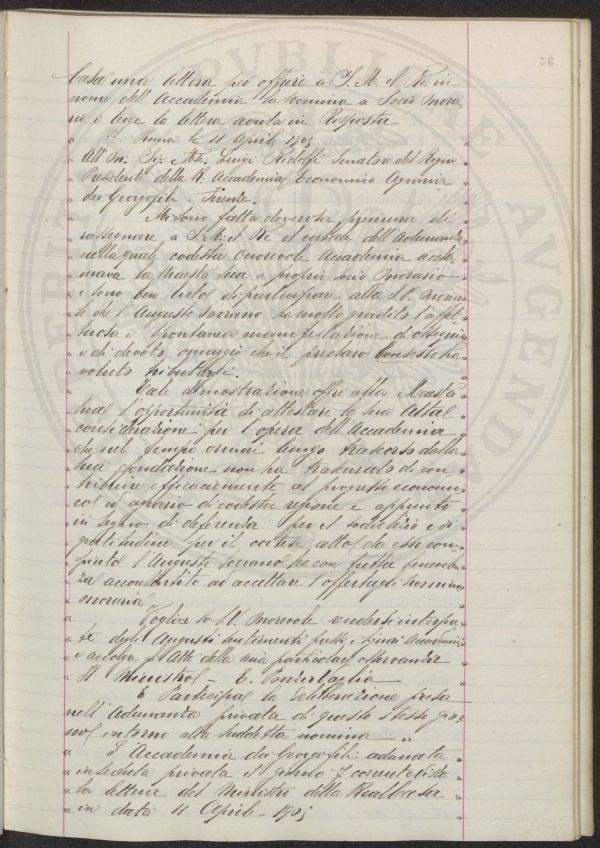 36
Casa una lettera per offrire a S. M. il Re in
nome dell'Accademia la nomina a Socio Onora
rio e legge la lettera avuta in Risposta
" Roma li 11 Aprile 1905
" All'On. Sig. Mar. Luigi Ridolfi Senatore del Regno "
" Presidente della R. Accademia Economico Agraria "
" dei Georgofili - Firenze. "
" Mi sono fatta doverosa premura di "
" rassegnare a S. M. il Re il verbale dell'Adunanza "
" nella quale codesta Onorevole Accademia accla "
" mava la Maestà Sua a proprio socio Onorario "
" e sono ben lieto di partecipare alla S. V. Onorevo "
" le che l'Augusto Sovrano ha molto gradito l'affet "
" tuosa e spontanea manifestazione di ossequio "
" e di devoto omaggio che il preclaro consesso ha "
" voluto tributargli. "
" Tale dimostrazione offre alla Maestà "
" Sua l'opportunità di attestare la Sua alta "
" considerazione per l'opera dell'Accademia "
" che nel tempo ormai lungo trascorso dalla "
" sua fondazione non ha trascurato di con "
" tribuire efficacemente al progresso economi "
" co e agrario di codesta regione e appunto "
" in segno di deferenza per il sodalizio e di "
" gratitudine per il cortese atto da esso com "
" piuto l'Augusto Sovrano ha con tutta benevolen "
" za acconsentito ad accettare l'offertagli nomina "
" onoraria "
" Voglia la S. V. Onorevole rendersi interpre "
" te degli Augusti sentimenti presso i Signori Accademici "
" e accolga gli Atti della mia particolare osservanza "
" Il Ministro - E. Ponzio Vaglia "
E Partecipa la deliberazione presa
nell'Adunanza privata di questo stesso gior
no intorno alla suddetta nomina "
" L'Accademia dei Georgofili adunata "
" in seduta privata il giorno 7 corrente vista "
" la lettera del Ministro della Real Casa "
" in data 11 Aprile 1905 "